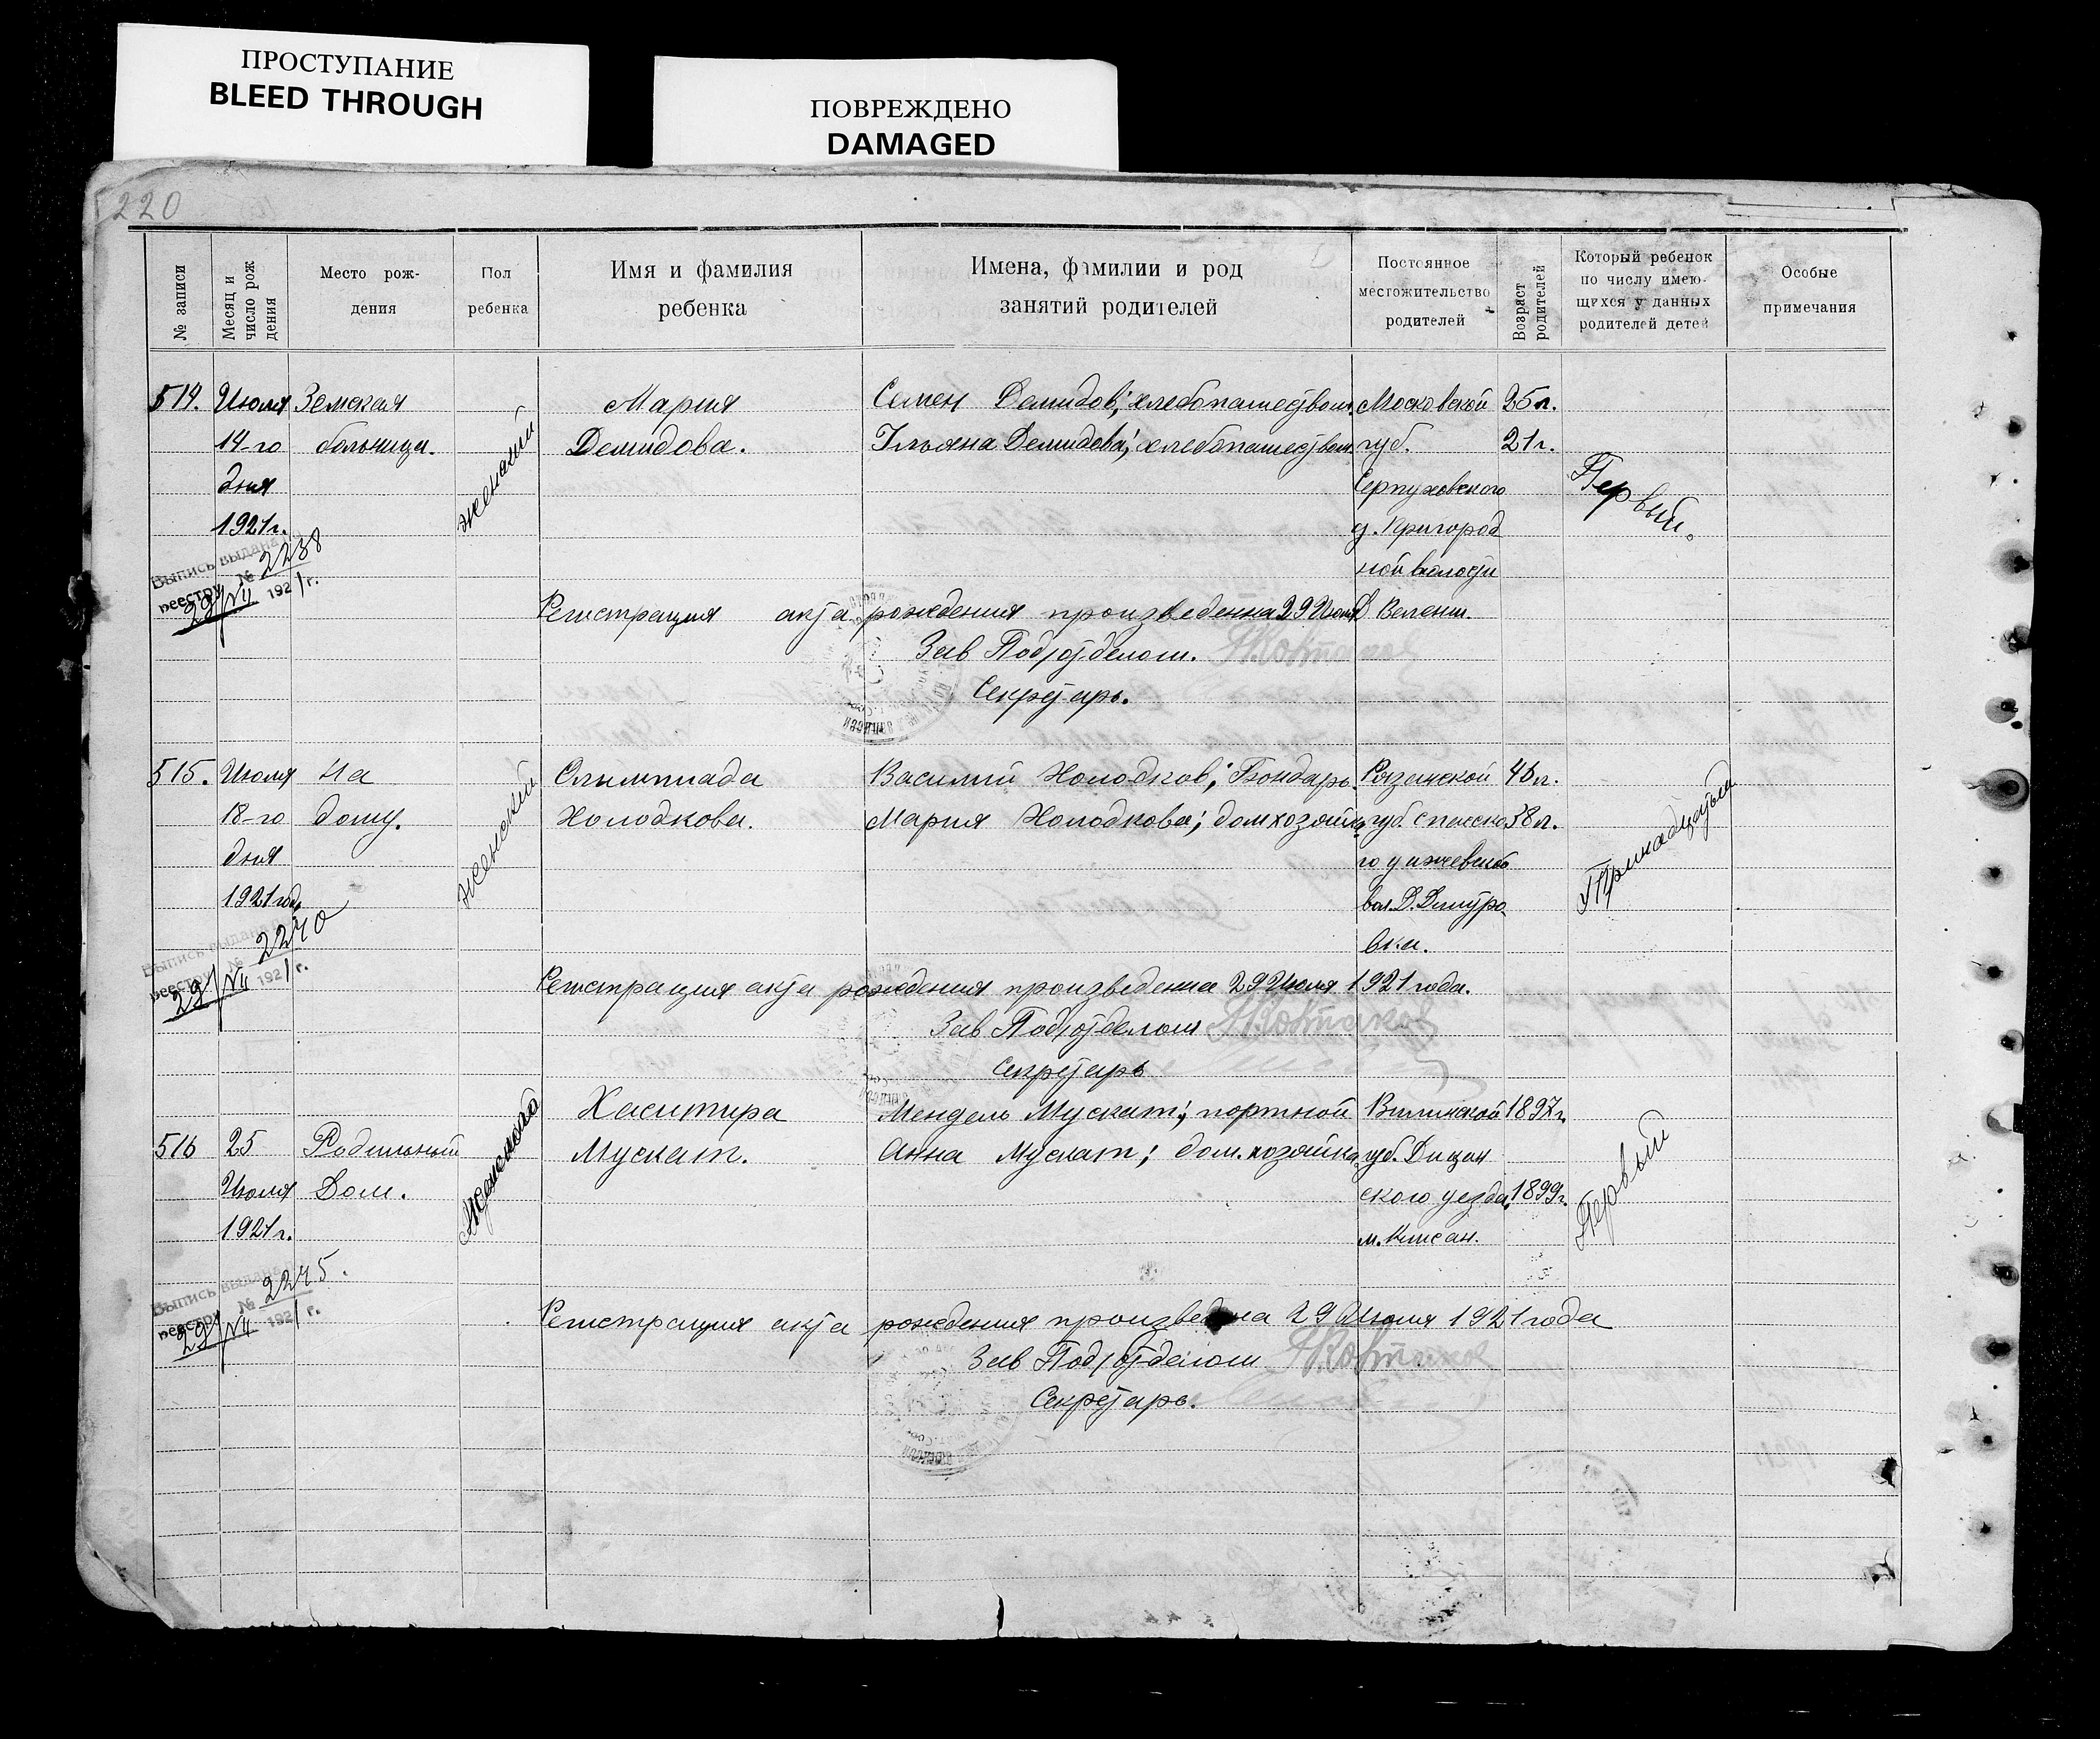 ПРОСТУПАНИЕ
BLEED THROUGH
ПОВРЕЖДЕНО
DAMAGED
220
№ записи
Месяц и число рож дения
Место рож-
дения
Пол
ребенка
Имя и фамилия
ребенка
Имена, фамилии и род
занятий родителей
Постоянное
местожительство
родителей
Возраст
родителей
Который ребенок
по числу имею-
щихся у данных
родителей детей
Особые
примечания
514. Июля Земская женский Мария Семен Демидов; хлебопашеством. Московской 25 л.
14-го больница. Демидова. Ульяна Демидова; хлебопашеством. губ. 21 г.
дня Серпуховского Первый.
1921 г. у. Пригород
ной волости
Выпись выдана по
реестру № 2238
29/VII 1921 г.
Регистрация акта рождения произведена 29 Июля Д.
Зав Под/отделом.
Секретарь.
515. Июля На женский Олимпиада Василий Холодков; Бондарь. Рязанской 46 л.
18-го дому. Холодкова. Мария Холодкова; домхозяйка губ. Спасско 38 л.
дня го у ижевской
1921 года вол. Д. Дмитро
вки.
Выпись выдана
реестру № 2240
29/VII 1921 г.
Регистрация акта рождения произведена 29 Июля 1921 года.
Зав Под/отделом
Секретарь
Мендель Мускат; портной Виленской 1897 г.
516 25 Родильный женского Мускат. Анна Мускат; дом.хозяйка губ. Первый
Июля Дом. ского уезда, 1899 г.
1921 г. м.
Выпись выдана
реестру № 2245.
29/VII 1921 г.
Регистрация акта рождения произведена 29 Июля 1921 года
Зав Под/отделом
Секретарь.